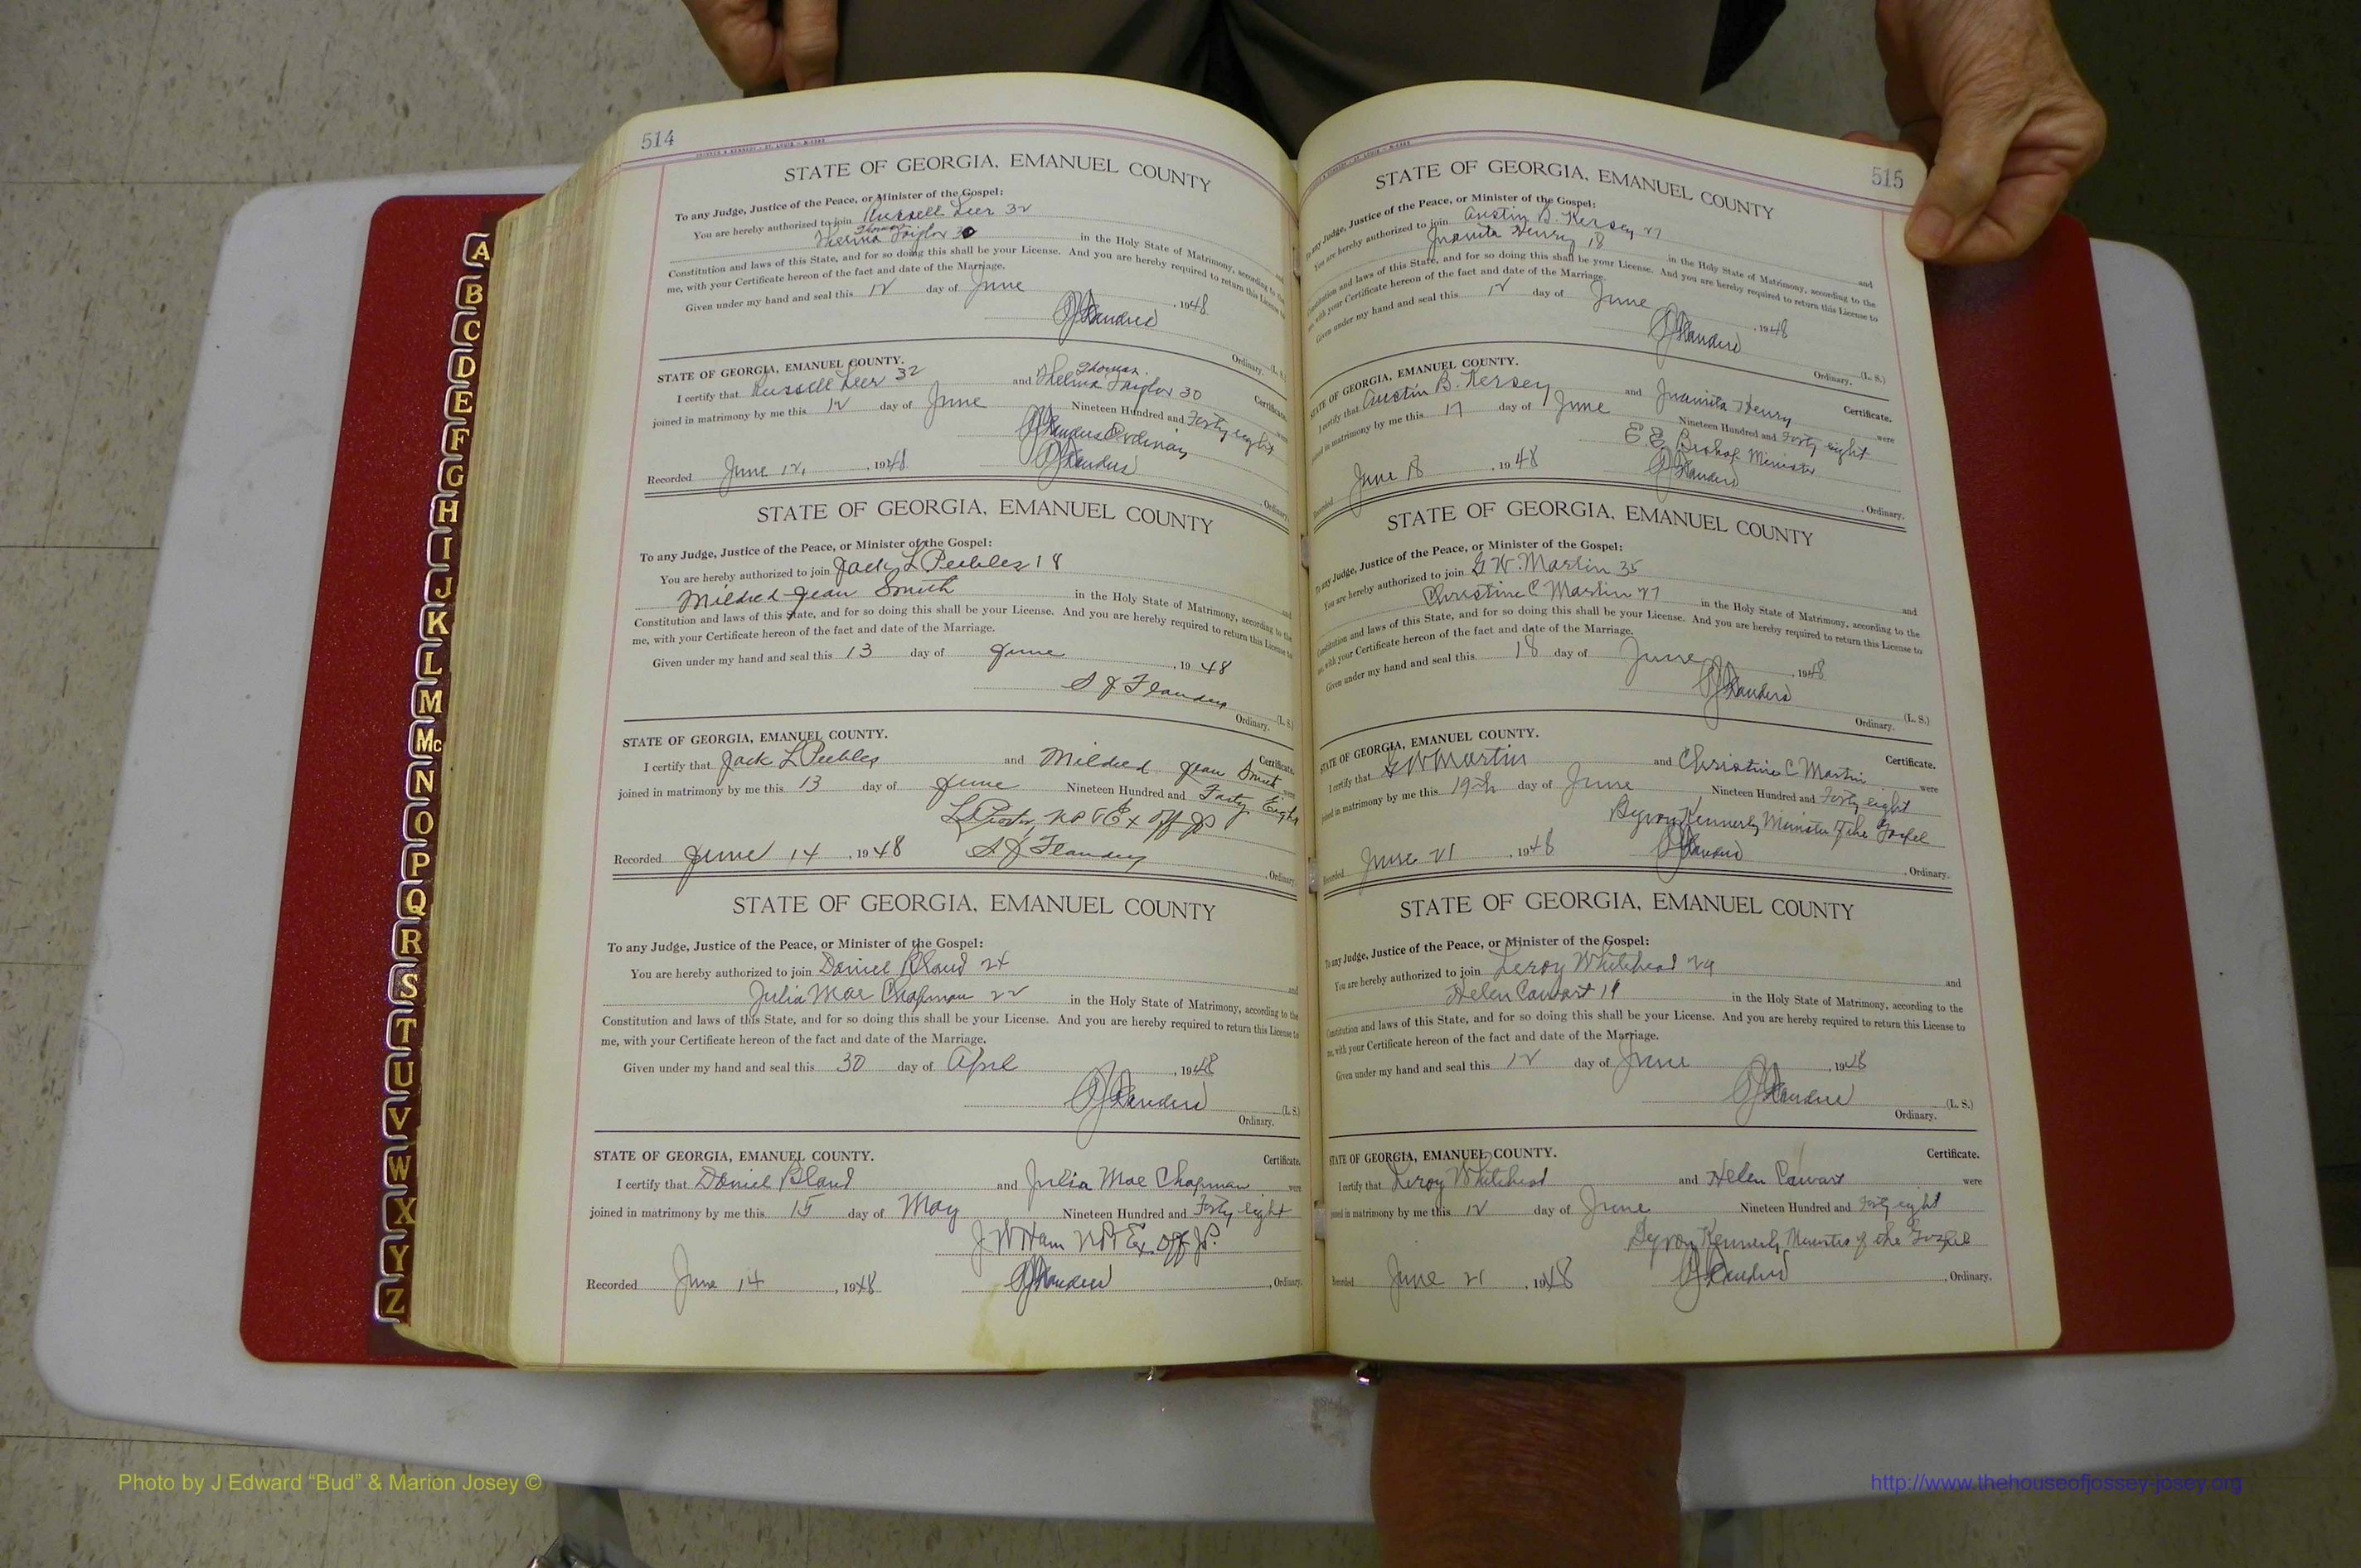 514
STATE OF GEORGIA, EMANUEL COUNTY
To any Judge, Justice of the Peace, or Minister of the Gospel:
You are hereby authorized to join Russell Leer 32 and
Thomas
Thelma Taylor 30 in the Holy State of Matrimony, according to the
Constitution and laws of this State, and for so doing this shall be your License. And you are hereby required to return this License to
me, with your Certificate hereon of the fact and date of the Marriage.
Given under my hand and seal this 12 day of June, 1948
SJ Flanders (L. S.)
Ordinary.
STATE OF GEORGIA, EMANUEL COUNTY. Certificate.
Thomas
I certify that Russell Leer 32 and Thelma Taylor 30 were
joined in matrimony by me this 12 day of June Nineteen Hundred and Forty eight
SJ Flanders Ordinary
Recorded June 12, 1948 SJ Flanders, Ordinary.
STATE OF GEORGIA, EMANUEL COUNTY
To any Judge, Justice of the Peace, or Minister of the Gospel:
You are hereby authorized to join Jack L Peebles 18 and
Mildred Jean Smith in the Holy State of Matrimony, according to the
Constitution and laws of this State, and for so doing this shall be your License. And you are hereby required to return this License to
me, with your Certificate hereon of the fact and date of the Marriage.
Given under my hand and seal this 13 day of June, 1948
S J Flanders (L. S.)
Ordinary.
STATE OF GEORGIA, EMANUEL COUNTY. Certificate.
I certify that Jack L Peebles and Mildred Jean Smith were
joined in matrimony by me this 13 day of June Nineteen Hundred and Forty Eight
NP & Ex Off JP
Recorded June 14, 1948 S. J Flanders, Ordinary.
STATE OF GEORGIA, EMANUEL COUNTY
To any Judge, Justice of the Peace, or Minister of the Gospel:
You are hereby authorized to join Daniel Bland 24 and
Julia Mae Chapman 22 in the Holy State of Matrimony, according to the
Constitution and laws of this State, and for so doing this shall be your License. And you are hereby required to return this License to
me, with your Certificate hereon of the fact and date of the Marriage.
Given under my hand and seal this 30 day of April, 1948
SJ Flanders (L. S.)
Ordinary.
STATE OF GEORGIA, EMANUEL COUNTY. Certificate.
I certify that Daniel Bland and Julia Mae Chapman were
joined in matrimony by me this 15 day of May Nineteen Hundred and Forty eight
J W Ham NP & Ex Off JP.
Recorded June 14, 1948 SJ Flanders, Ordinary.
515
STATE OF GEORGIA, EMANUEL COUNTY
To any Judge, Justice of the Peace, or Minister of the Gospel:
You are hereby authorized to join Austin B. Kersey 27 and
Juanita Henry 18 in the Holy State of Matrimony, according to the
Constitution and laws of this State, and for so doing this shall be your License. And you are hereby required to return this License to
me, with your Certificate hereon of the fact and date of the Marriage.
Given under my hand and seal this 12 day of June, 1948
SJ Flanders (L. S.)
Ordinary.
STATE OF GEORGIA, EMANUEL COUNTY. Certificate.
I certify that Austin B. Kersey and Juanita Henry were
joined in matrimony by me this 17 day of June Nineteen Hundred and Forty eight
E. E. Bishop Minister
Recorded June 18, 1948 SJ Flanders, Ordinary.
STATE OF GEORGIA, EMANUEL COUNTY
To any Judge, Justice of the Peace, or Minister of the Gospel:
You are hereby authorized to join G W. Martin 35 and
Christine C Martin 27 in the Holy State of Matrimony, according to the
Constitution and laws of this State, and for so doing this shall be your License. And you are hereby required to return this License to
me, with your Certificate hereon of the fact and date of the Marriage.
Given under my hand and seal this 18 day of June, 1948
SJ Flanders (L. S.)
Ordinary.
STATE OF GEORGIA, EMANUEL COUNTY. Certificate.
I certify that G W Martin and Christine C Martin were
joined in matrimony by me this 19th day of June Nineteen Hundred and Forty eight
Byron Kennerly Minister of the Gospel
Recorded June 21, 1948 SJ Flanders, Ordinary.
STATE OF GEORGIA, EMANUEL COUNTY
To any Judge, Justice of the Peace, or Minister of the Gospel:
You are hereby authorized to join Leroy Whitehead 29 and
Helen Cowart 19 in the Holy State of Matrimony, according to the
Constitution and laws of this State, and for so doing this shall be your License. And you are hereby required to return this License to
me, with your Certificate hereon of the fact and date of the Marriage.
Given under my hand and seal this 12 day of June, 1948
SJ Flanders (L. S.)
Ordinary.
STATE OF GEORGIA, EMANUEL COUNTY. Certificate.
I certify that Leroy Whitehead and Helen Cowart were
joined in matrimony by me this 12 day of June Nineteen Hundred and Forty eight
Byron Kennerly Minister of the Gospel
Recorded June 21, 1948 SJ Flanders, Ordinary.
A
B
C
D
E
F
G
H
I
J
K
L
M
Mc
N
O
P
Q
R
S
T
U
V
W
X
Y
Z
Photo by J Edward “Bud” & Marion Josey ©
http://www.thehouseofjossey-josey.org